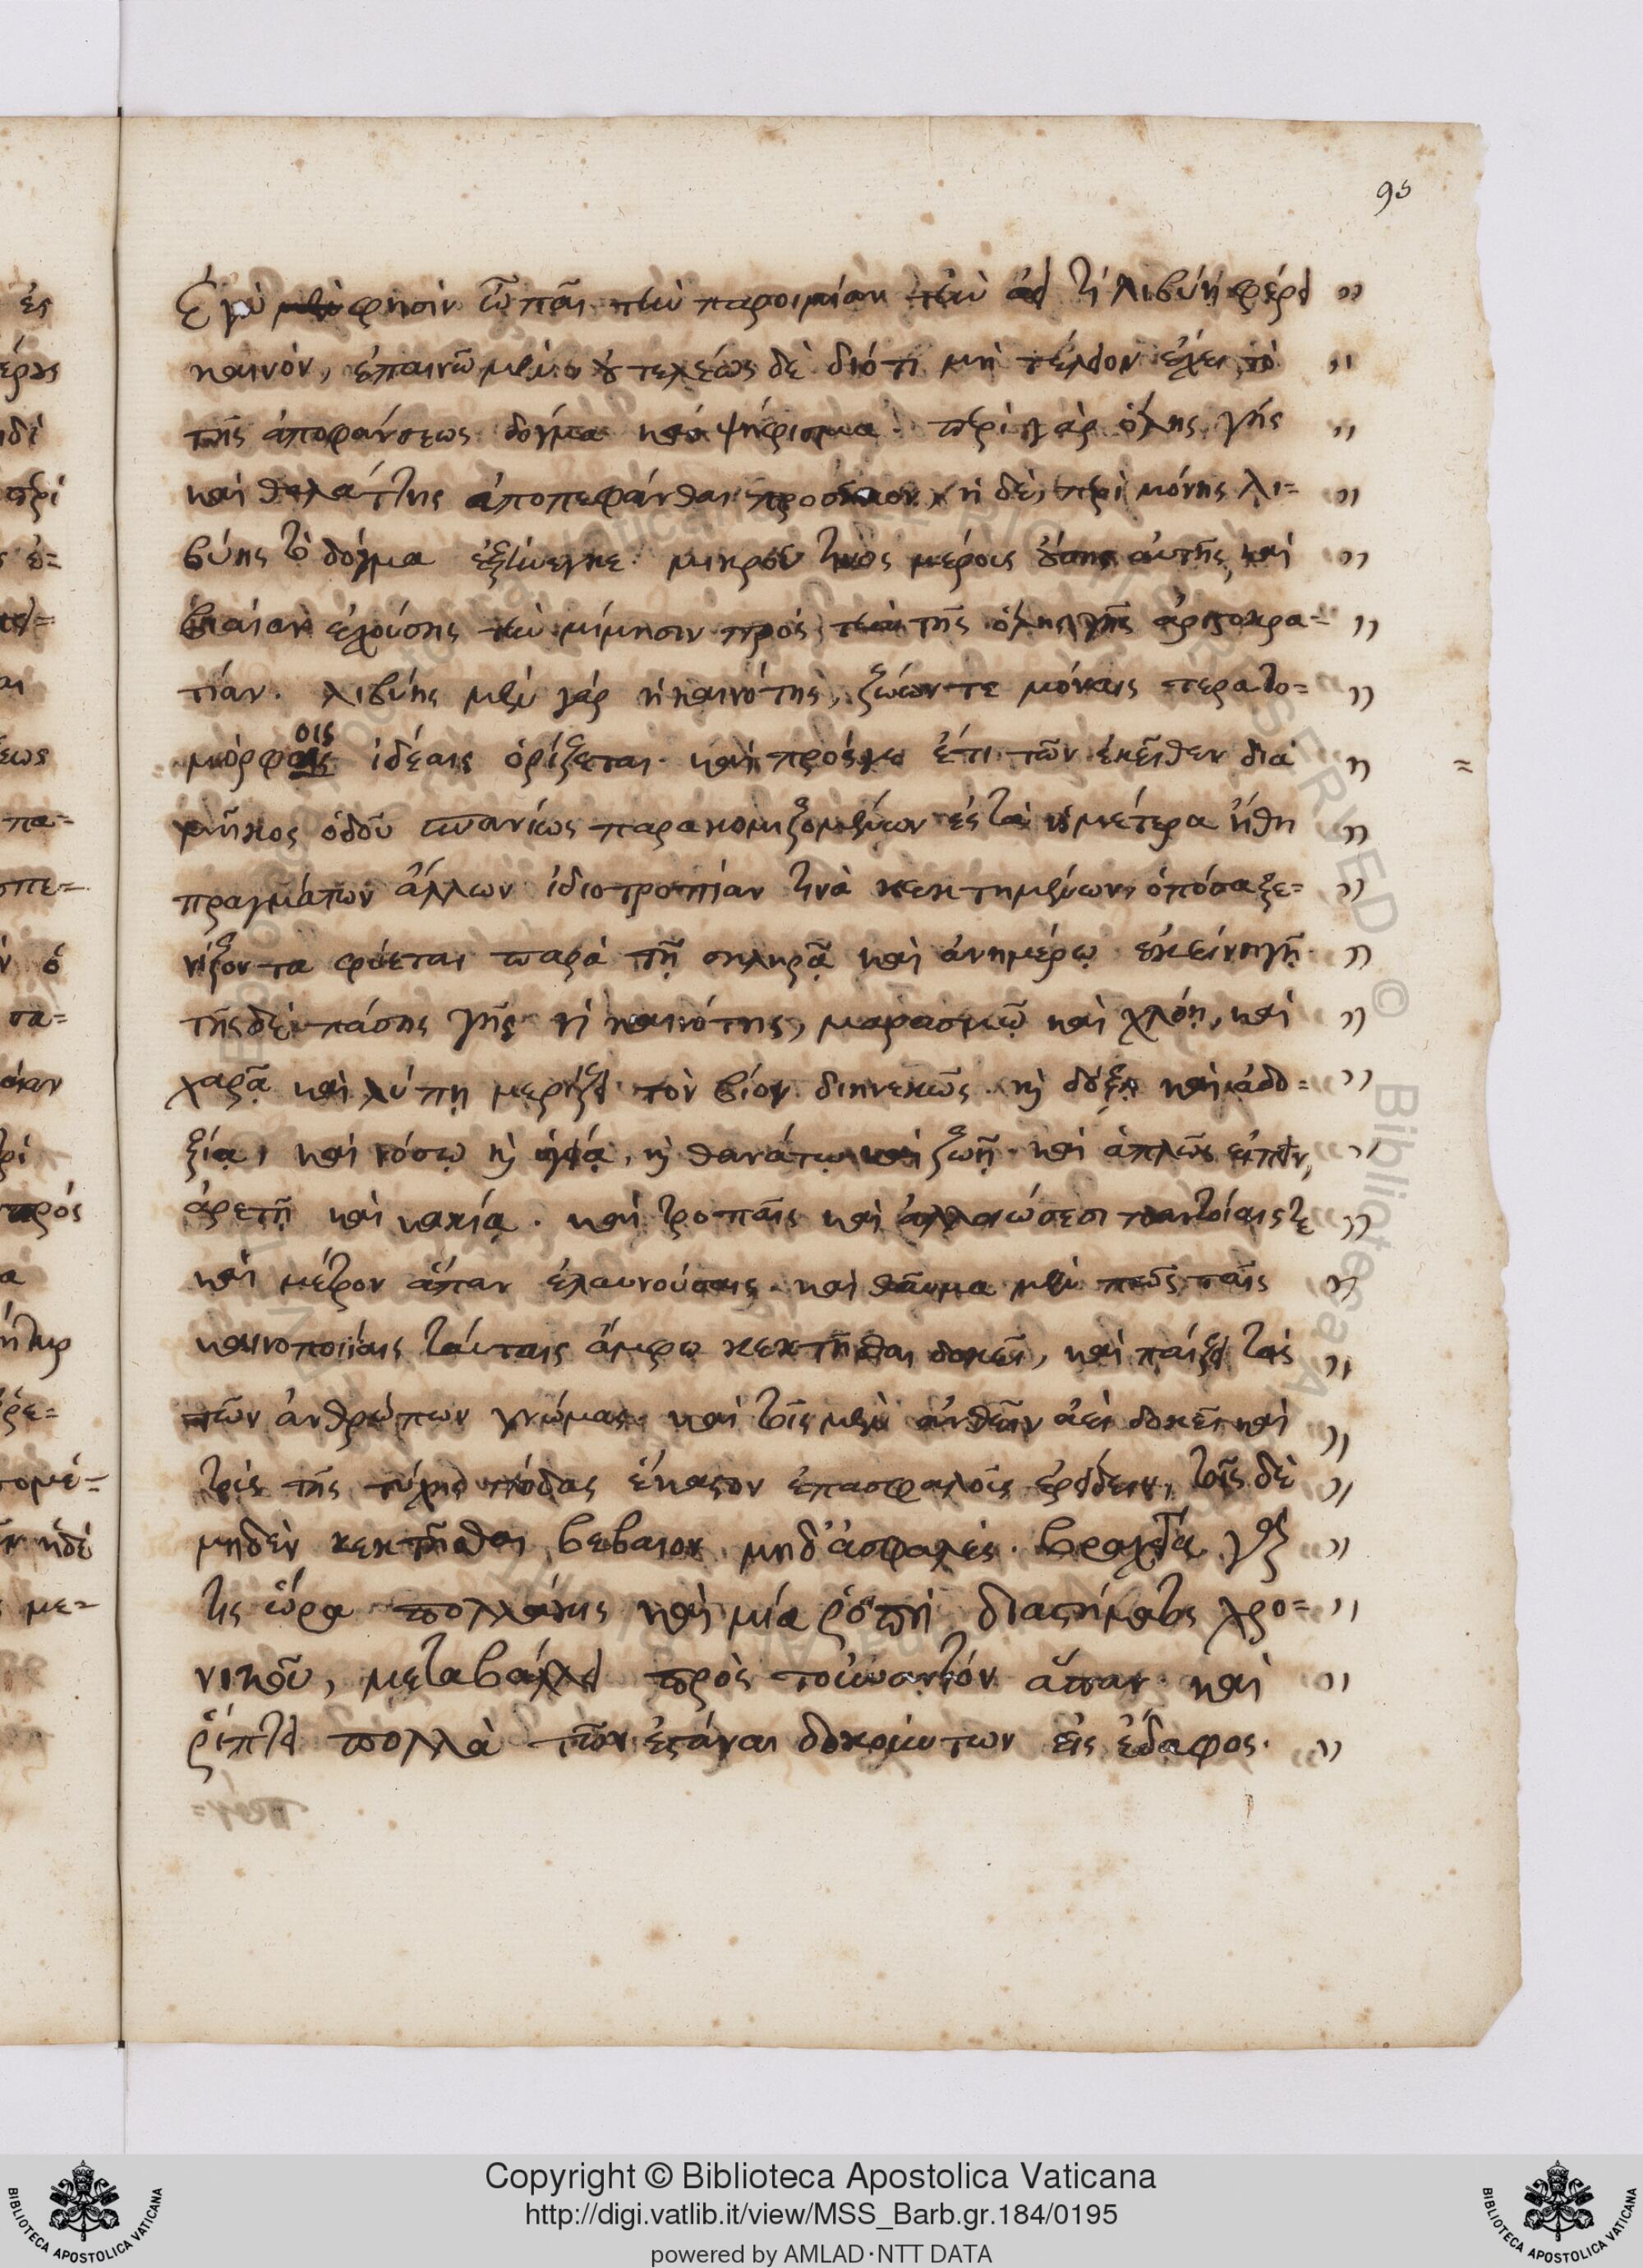 95
Ἐγὼ μὲν φησὶν ὦ παῖ τὴν παροιμίαν τὴν ἀεί τι Λιβύη φέρει
καινὸν, ἐπαινῶ μὲν, οὐ τελέως δὲ διότι μὴ τέλειον ἔχει τὸ
τῆς ἀποφάνσεως δόγμα καὶ ψήφισμα. περὶ γὰρ ὅλης γῆς
καὶ θαλάττης ἀποπεφάνθαι προσῆκον, ἡ δὲ περὶ μόνης λι=
βύης τὸ δόγμα ἐξήνεγκε. μικροῦ τινος μέρους οὔσης αὐτῆς, καὶ
βιαίαν ἐχούσης τὴν μίμησιν πρὸς τὴν τῆς ὅλης γῆς ἀριστοκρα=
τίαν. λιβύης μὲν γὰρ ἡ καινότης, ζώων τε μόναις τερατο=
μόρφοις ἰδέαις ὁρίζεται. καὶ πρόσγε ἔτι τῶν ἐκεῖθεν διὰ
μῆκος ὁδοῦ σπανίως παρακομιζομένων ἐς τὰ ἡμέτερα ἤθη
πραγμάτων ἄλλων ἰδιοτροπίαν τινὰ κεκτημένων, ὁπόσα ξε=
νίζοντα φύεται παρὰ τῇ σκληρᾷ καὶ ἀνημέρῳ ἐκείνῃ γῇ.
τῆς δὲ πάσης γῆς ἡ καινότης, μαρασμῷ καὶ χλόῃ, καὶ
χαρᾷ καὶ λύπῃ μερίζει τὸν βίον διηνεκῶς. καὶ δόξῃ καὶ ἀδο=
ξίᾳ, καὶ νόσῳ καὶ ὑγείᾳ, καὶ θανάτῳ καὶ ζωῇ. καὶ ἁπλῶς εἰπεῖν,
ἀρετῇ καὶ κακίᾳ. καὶ τροπαῖς καὶ ἀλλοιώσεσι παντοίαις τε
καὶ μέτρον ἅπαν ἐλαυνούσαις. καὶ θαῦμα μὲν πῶς ταῖς
καινοποιίαις ταύταις ἄμφω κεκτῆσθαι δοκεῖ, καὶ παίζει τὰς
τῶν ἀνθρώπων γνώμας. καὶ τοῖς μὲν ἀνθεῖν ἀεὶ δοκεῖ καὶ
τοὺς τῆς τύχης πόδας ἕκαστον ἐπασφαλοῦς ἐρείδειν, τοῖς δὲ
μηδὲν κεκτῆσθαι βέβαιον μηδ' ἀσφαλές. βραχεῖα γάρ
τις ὥρα πολλάκις καὶ μία ῥοπὴ διαστήματος χρο=
νικοῦ, μεταβάλλει πρὸς τοὐναντίον ἅπαν. καὶ
ῥίπτει πολλὰ τῶν ἑστάναι δοκούντων εἰς ἔδαφος.
Copyright © Biblioteca Apostolica Vaticana
http://digi.vatlib.it/view/MSS_Barb.gr.184/0195
powered by AMLAD·NTT DATA